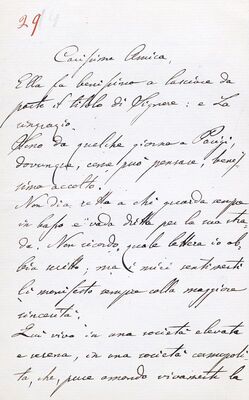 29
Carissima Amica,
Ella fa benissimo a lasciare da
parte il titolo di Signore: e La
ringrazio.
Sono da qualche giorno a Parigi,
dovunque, come può pensare, benis
simo accolto.
Non dia retta a chi guarda sempre
in basso e vada dritta per la sua stra
da. Non ricordo quale lettera io ab
bia scritto, ma i miei sentimenti
li manifesto sempre colla maggiore
sincerità.
Qui vivo in una società elevata
e serena, in una società cosmopoli
ta, che, pure amando vivamente la